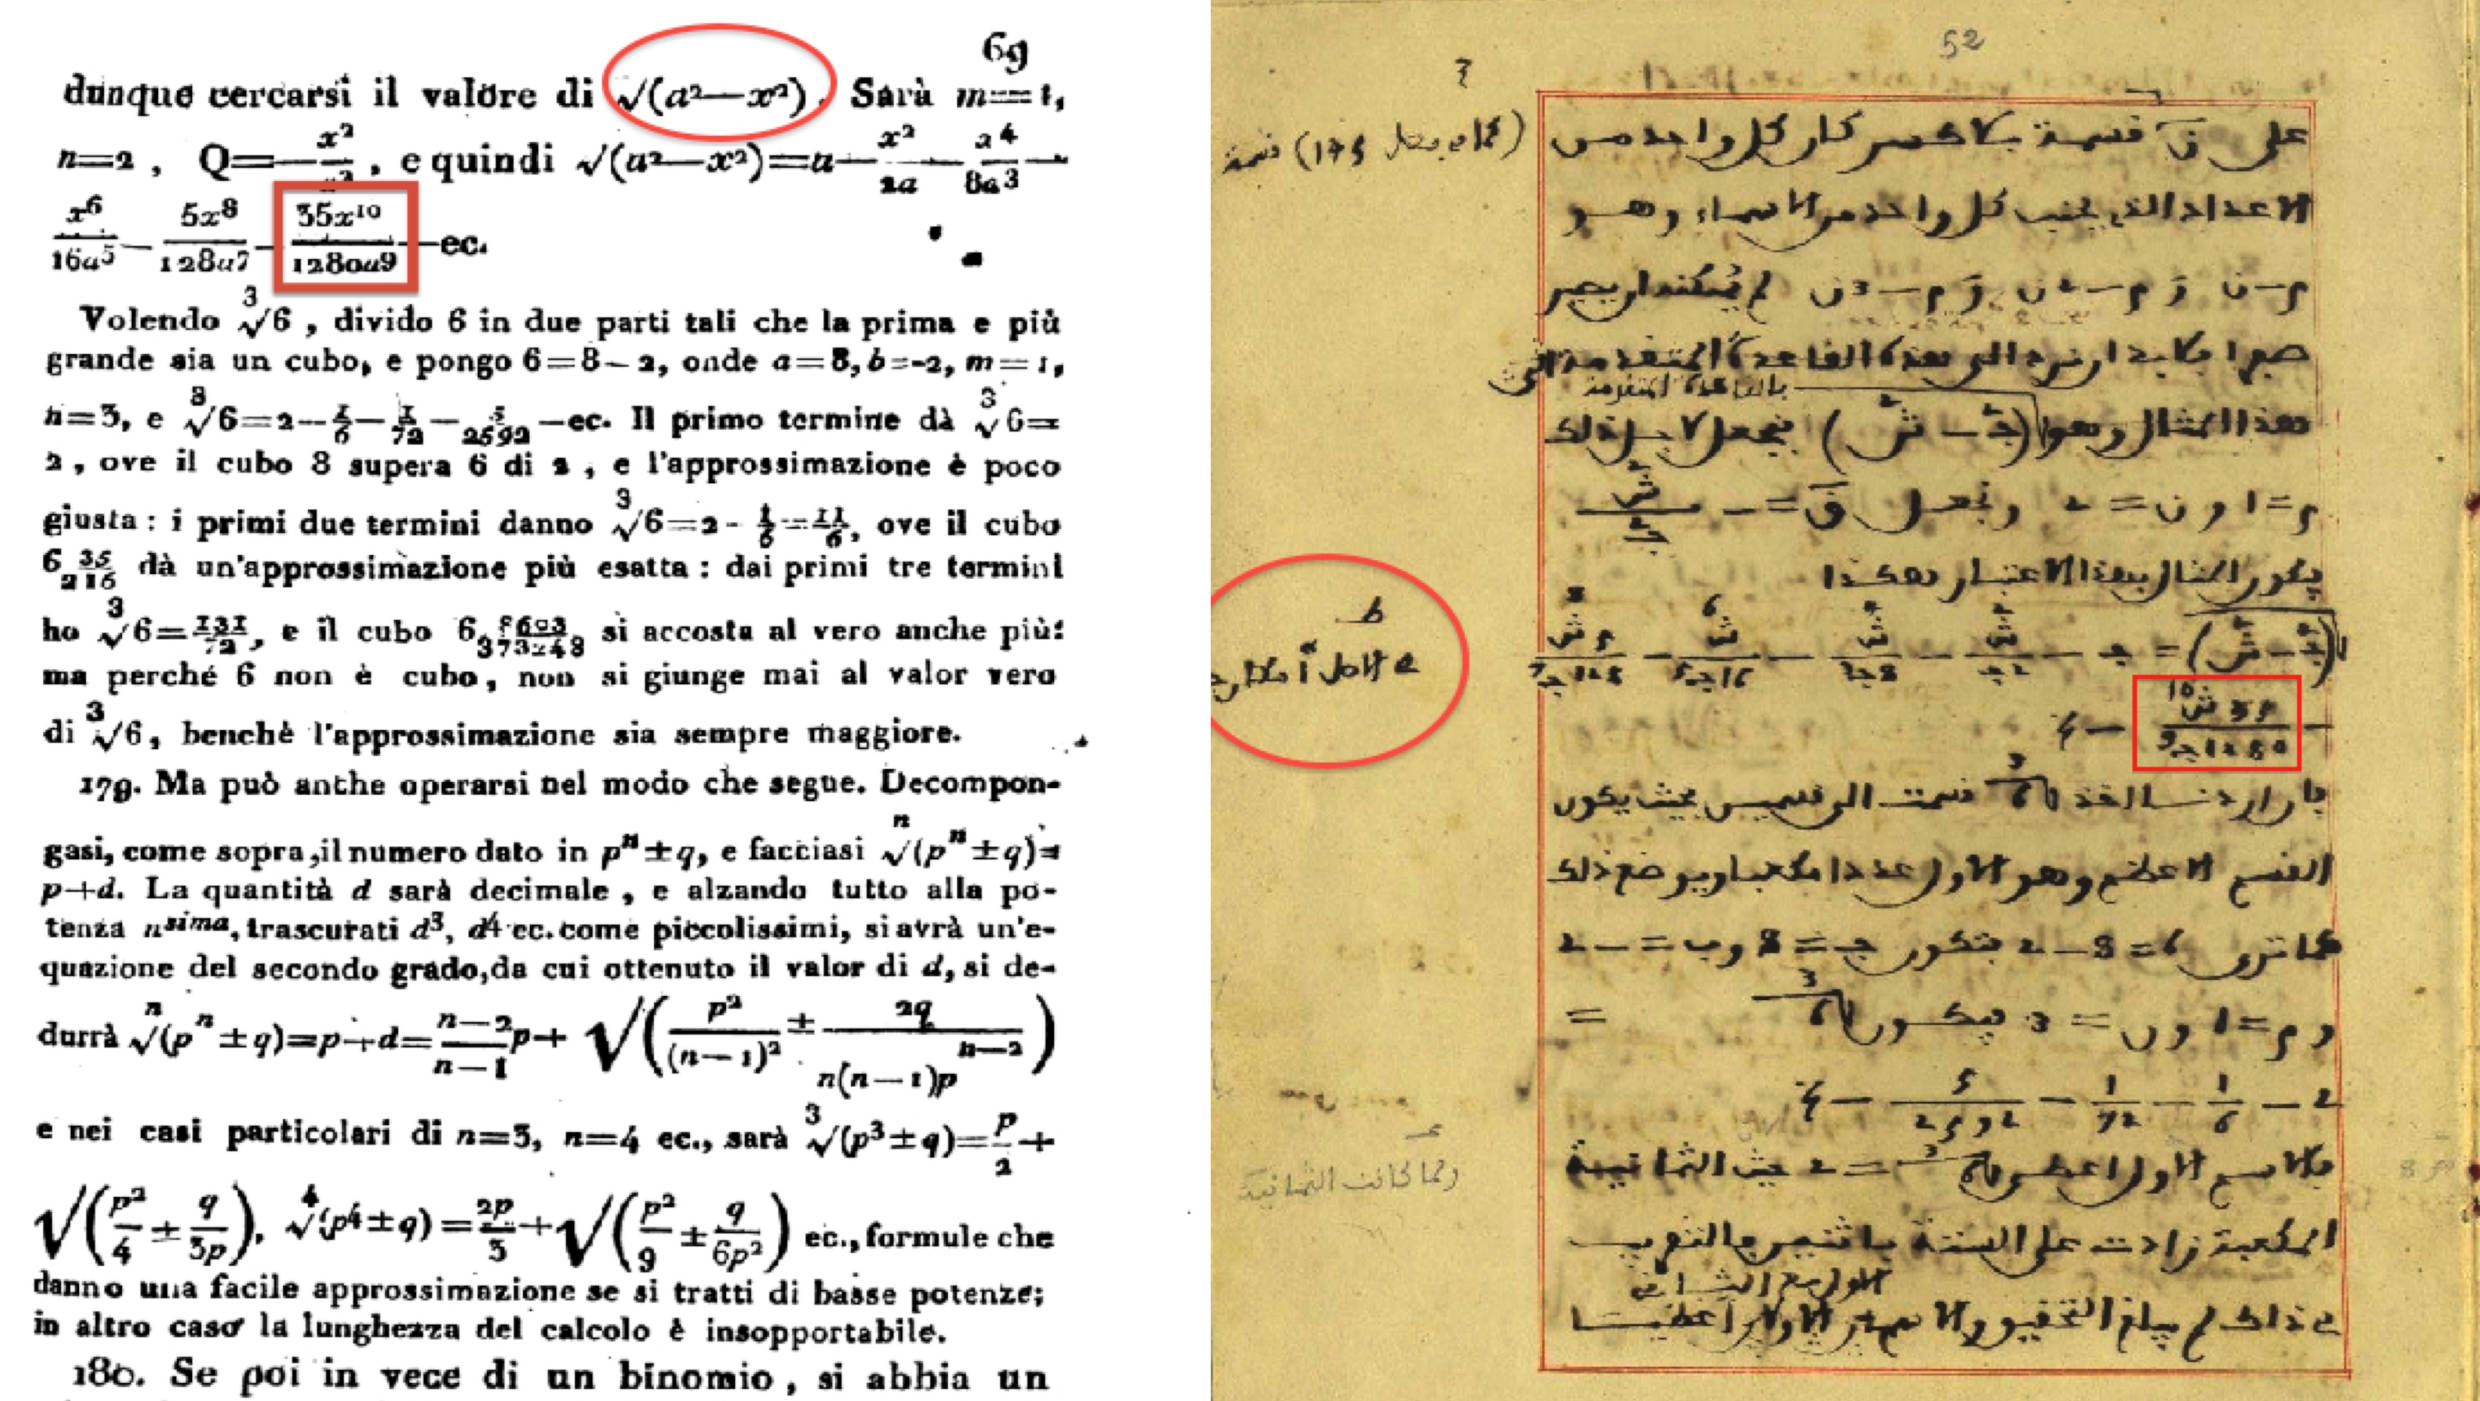 69
dunque cercarsi il valore di √(a²—x²). Sarà m=1,
n=2, Q=—x²/a², e quindi √(a²—x²)=a—x²/2a—x⁴/8a³—
x⁶/16a⁵—5x⁸/128a⁷—35x¹⁰/1280a⁹—ec.
Volendo ³√6, divido 6 in due parti tali che la prima e più
grande sia un cubo, e pongo 6=8—2, onde a=8, b=-2, m=1,
n=3, e ³√6=2—1/6—1/72—5/2592—ec. Il primo termine dà ³√6=
2, ove il cubo 8 supera 6 di 2, e l'approssimazione è poco
giusta: i primi due termini danno ³√6=2-1/6=11/6, ove il cubo
6 35/216 dà un'approssimazione più esatta: dai primi tre termini
ho ³√6=131/72, e il cubo si accosta al vero anche più:
ma perché 6 non è cubo, non si giunge mai al valor vero
di ³√6, benchè l'approssimazione sia sempre maggiore.
179. Ma può anche operarsi nel modo che segue. Decompon-
gasi, come sopra, il numero dato in pⁿ±q, e facciasi ⁿ√(pⁿ±q)=
p+d. La quantità d sarà decimale, e alzando tutto alla po-
tenza nsima, trascurati d³, d⁴ ec. come piccolissimi, si avrà un'e-
quazione del secondo grado, da cui ottenuto il valor di d, si de-
durrà ⁿ√(pⁿ±q)=p+d=(n—2)/(n—1)p+√(p²/(n—1)²±2q/n(n—1)pⁿ⁻²)
e nei casi particolari di n=3, n=4 ec., sarà ³√(p³±q)=p/2+
√(p²/4±q/3p), ⁴√(p⁴±q)=2p/3+√(p²/9±q/6p²) ec., formule che
danno una facile approssimazione se si tratti di basse potenze;
in altro caso la lunghezza del calcolo è insopportabile.
180. Se poi in vece di un binomio, si abbia un
52
على ن قسمة بلا كسر كان كل واحد من
الاعداد التي بجنب كل واحد من الاسماء وهو
م—ن و م—2ن و م—3ن لم يمكن ان يصير
صفرا فلا بد ان نرد الى هذه القاعدة المتقدمة
بالقاعدة المتقدمة
هذا المثال وهو (ج²—ش²) فنجعل لاجل ذلك
م=1 و ن=2 ونجعل ق=—ش²/ج²
فيكون المثال بهذا الاعتبار هكذا
√(ج²—ش²)=ج—ش²/2ج—ش⁴/8ج³—ش⁶/16ج⁵—5ش⁸/128ج⁷
—35ش¹⁰/1280ج⁹—
فان اردنا اخذ ³√6 قسمت الى قسمين بحيث يكون
القسم الاعظم وهو الاول عددا مكعبا ويوضع ذلك
كما ترى 6=8—2 فيكون ج=8 وب=—2
و م=1 و ن=3 فيكون ³√6=
2—1/6—1/72—5/2592—
فالاسم الاول اعطى ³√6=2 حيث الثمانية
المكعبة زادت على الستة باثنين فالتقريب
الاول مع الثاني
في ذلك لم يبلغ التحقيق والاسم
ولما كانت الثمانية